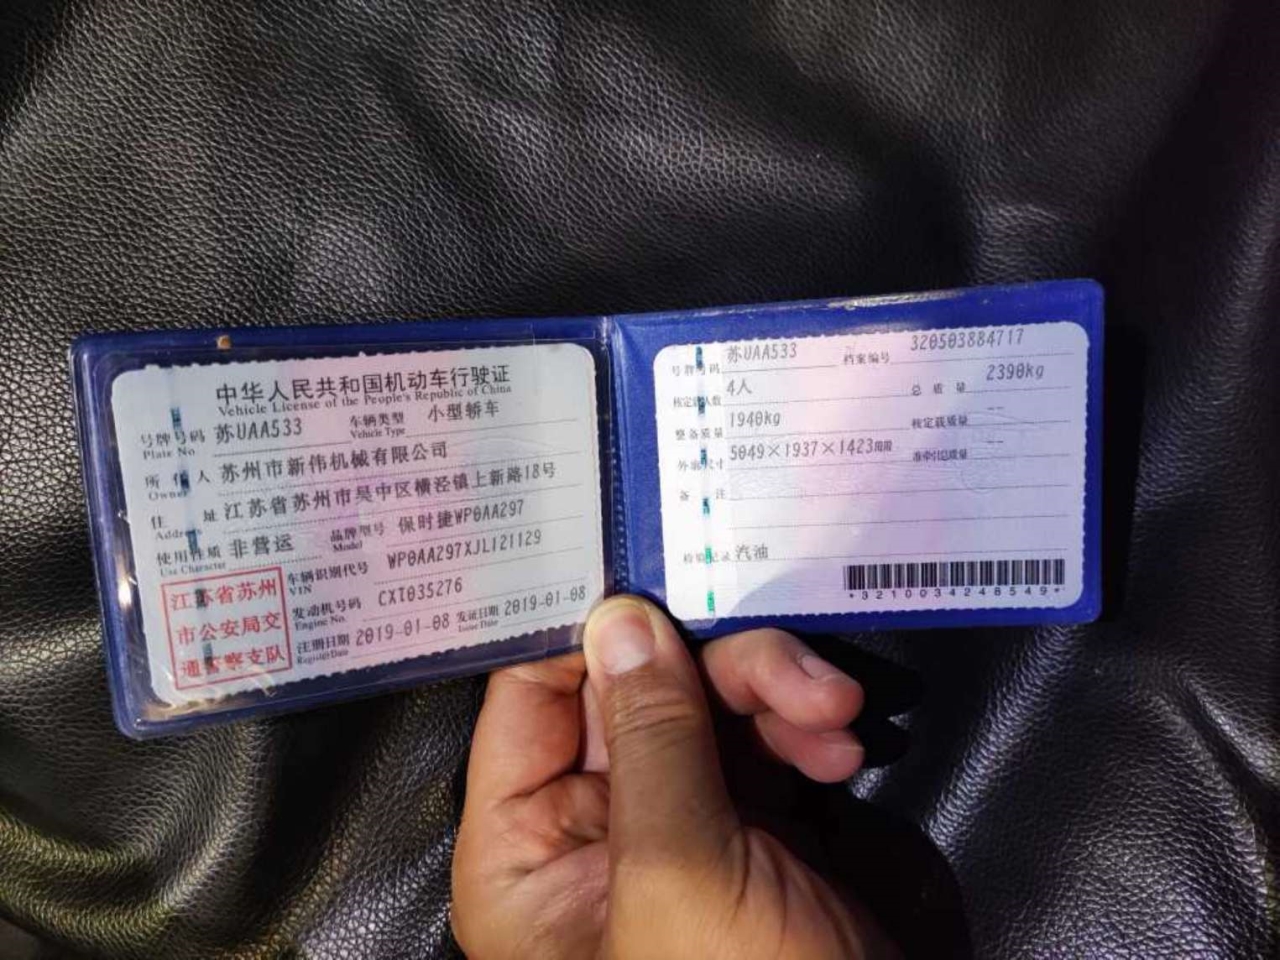 中华人民共和国机动车行驶证
Vehicle License of the People's Republic of China
号牌号码 苏UAA533 车辆类型 小型轿车
Plate No. Vehicle Type
所有人 苏州市新伟机械有限公司
Owner
住址 江苏省苏州市吴中区横泾镇上新路18号
Address
使用性质 非营运 品牌型号 保时捷WP0AA297
Use Character Model
江苏省苏州
市公安局交
通警察支队
车辆识别代号 WP0AA297XJL121129
VIN
发动机号码 CXT035276
Engine No.
注册日期 2019-01-08 发证日期 2019-01-08
Register Date Issue Date
号牌号码 苏UAA533 档案编号 320503884717
核定载人数 4人 总质量 2390kg
整备质量 1940kg 核定载质量 --
外廓尺寸 5049×1937×1423 准牵引总质量 --
备注
检验记录 汽油
*3210034248549*